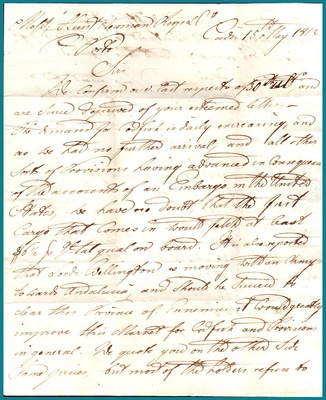 Messrs Hunt Newman Roope & Co
Cadiz 15 May 1812
Porto
Sirs
We confirm our last respects of 30th Ulto and
are since deprived of your esteemed letters.
The demand for Codfish is daily encreasing, and
as we had no further arrival, and all other
Sorts of Provisions having advanced in Consequence
of the accounts of an Embargo in the United
States, we have no doubt that the first
Cargo that comes in would yield at least
on board. It is also reported
that Lords Wellington is moving with an Army
towards Andalucia, and should he succeed to
clear this Province of Ennemies, it would greatly
improve this Market for Codfish and Provisions
in general. We quote you on the other Side
Some prices, but most of the holders refuse to